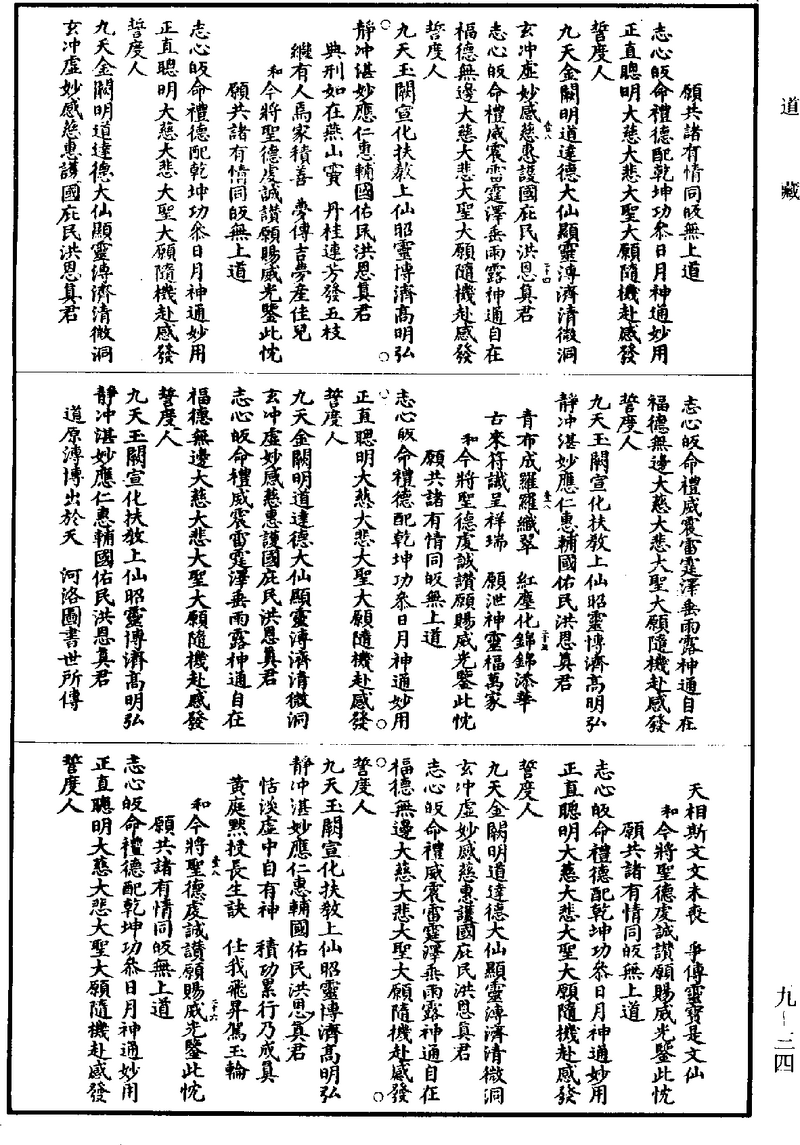 道藏
願共諸有情同皈無上道
志心皈命禮德配乾坤功叅日月神通妙用
正直聰明大慈大悲大聖大願隨機赴感發
誓度人
九天金闕明道達德大仙顯靈溥濟清微洞
玄冲虛妙感慈惠護國庇民洪恩真君
志心皈命禮威震雷霆澤垂雨露神通自在
福德無邊大慈大悲大聖大願隨機赴感發
誓度人
九天玉闕宣化扶敎上仙昭靈博濟高明弘
靜冲湛妙應仁惠輔國佑民洪恩真君
典刑如在燕山竇 丹桂連芳發五枝
繼有人爲家積善 夢傳吉夢産佳兒
和今將聖德虔誠讚願賜威光鑒此忱
願共諸有情同皈無上道
志心皈命禮德配乾坤功叅日月神通妙用
正直聰明大慈大悲大聖大願隨機赴感發
誓度人
九天金闕明道達德大仙顯靈溥濟清微洞
玄冲虛妙感慈惠護國庇民洪恩真君
志心皈命禮威震雷霆澤垂雨露神通自在
福德無邊大慈大悲大聖大願隨機赴感發
誓度人
九天玉闕宣化扶敎上仙昭靈博濟高明弘
靜冲湛妙應仁惠輔國佑民洪恩真君
青布成羅羅織翠 紅塵化錦錦添華
古來符讖呈祥瑞 願泄神靈福萬家
和今將聖德虔誠讚願賜威光鑒此忱
願共諸有情同皈無上道
志心皈命禮德配乾坤功叅日月神通妙用
正直聰明大慈大悲大聖大願隨機赴感發
誓度人
九天金闕明道達德大仙顯靈溥濟清微洞
玄冲虛妙感慈惠護國庇民洪恩真君
志心皈命禮威震雷霆澤垂雨露神通自在
福德無邊大慈大悲大聖大願隨機赴感發
誓度人
九天玉闕宣化扶敎上仙昭靈博濟高明弘
靜冲湛妙應仁惠輔國佑民洪恩真君
道原溥博出於天 河洛圖書世所傳
天相斯文文未喪 爭傳靈寶是文仙
和今將聖德虔誠讚願賜威光鑒此忱
願共諸有情同皈無上道
志心皈命禮德配乾坤功叅日月神通妙用
正直聰明大慈大悲大聖大願隨機赴感發
誓度人
九天金闕明道達德大仙顯靈溥濟清微洞
玄冲虛妙感慈惠護國庇民洪恩真君
志心皈命禮威震雷霆澤垂雨露神通自在
福德無邊大慈大悲大聖大願隨機赴感發
誓度人
九天玉闕宣化扶敎上仙昭靈博濟高明弘
靜冲湛妙應仁惠輔國佑民洪恩真君
恬淡虛中自有神 積功累行乃成真
黄庭黙授長生訣 任我飛昇駕玉輪
和今將聖德虔誠讚願賜威光鑒此忱
願共諸有情同皈無上道
志心皈命禮德配乾坤功叅日月神通妙用
正直聰明大慈大悲大聖大願隨機赴感發
誓度人
九—三四